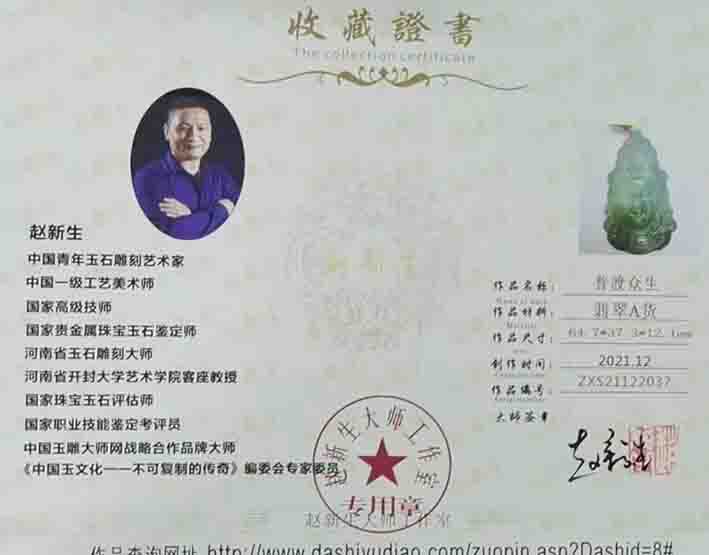 收藏證書
The collection certificate
赵新生
中国青年玉石雕刻艺术家
中国一级工艺美术师
国家高级技师
国家贵金属珠宝玉石鉴定师
河南省玉石雕刻大师
河南省开封大学艺术学院客座教授
国家珠宝玉石评估师
国家职业技能鉴定考评员
中国玉雕大师网战略合作品牌大师
《中国玉文化——不可复制的传奇》编委会专家委员
作品名称: 普渡众生
作品材料: 翡翠A货
作品尺寸: 64.7*37.3*12.1mm
创作时间: 2021.12
作品编号: ZXS21122037
大师签章
赵新生
赵新生大师工作室
专用章
赵新生大师工作室
作品查询网址 http://www.dashiyudiao.com/zuopin.asp?Dashid=8#